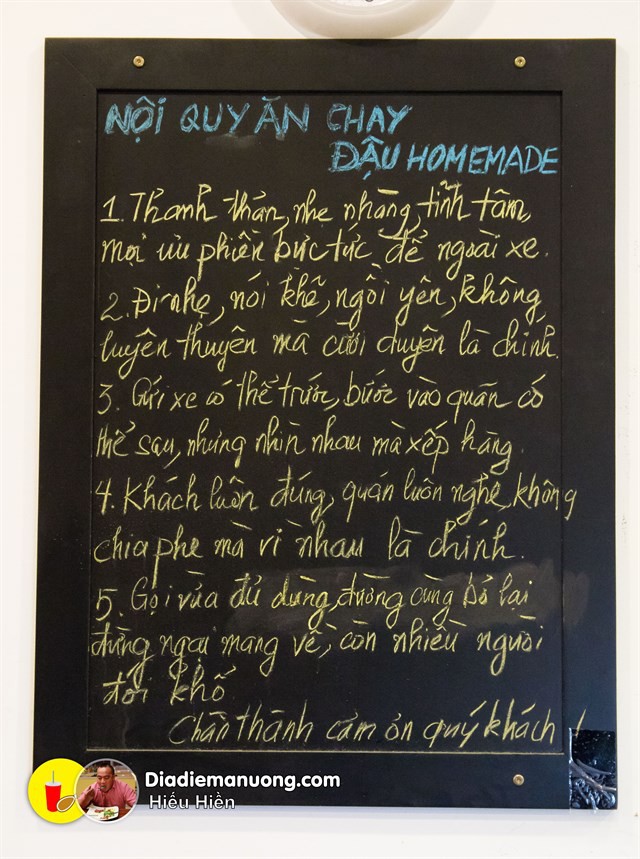 NỘI QUY ĂN CHAY
ĐẬU HOMEMADE
1. Thanh thản, nhẹ nhàng, tĩnh tâm,
mọi ưu phiền bực tức để ngoài xe.
2. Đi nhẹ, nói khẽ, ngồi yên, không
luyên thuyên mà cười duyên là chính.
3. Gửi xe có thể trước, bước vào quán có
thể sau, nhưng nhìn nhau mà xếp hàng.
4. Khách luôn đúng, quán luôn nghe, không
chia phe mà vì nhau là chính.
5. Gọi vừa đủ dùng, đường cùng bỏ lại
đừng ngại mang về, còn nhiều người
đói khổ
Chân thành cảm ơn quý khách!
Diadiemanuong.com
Hiếu Hiền